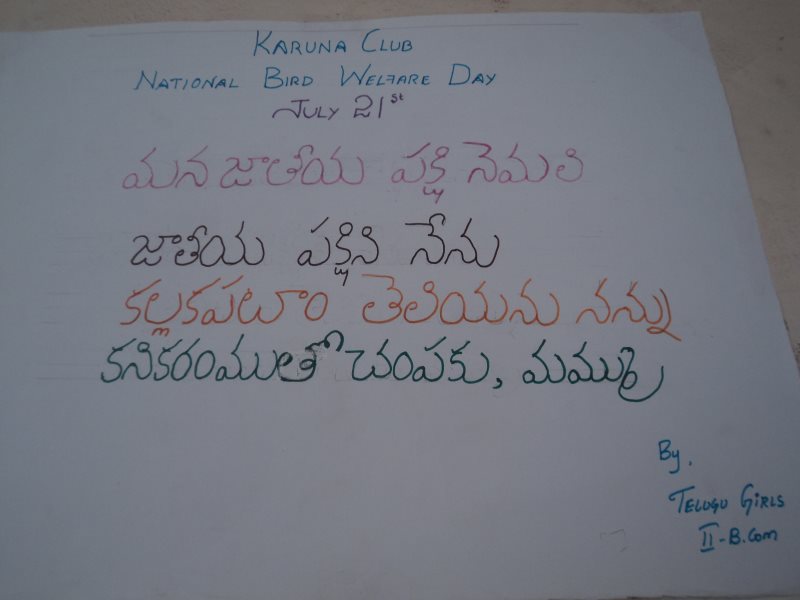 KARUNA CLUB
NATIONAL BIRD WELFARE DAY
JULY 21st
మన జాతీయ పక్షి నెమలి
జాతీయ పక్షిని నేను
కల్లకపటాం తెలియను నన్ను
కనికరంముతో చంపకు, మమ్ము
By.
TELUGU GIRLS
II-B.Com